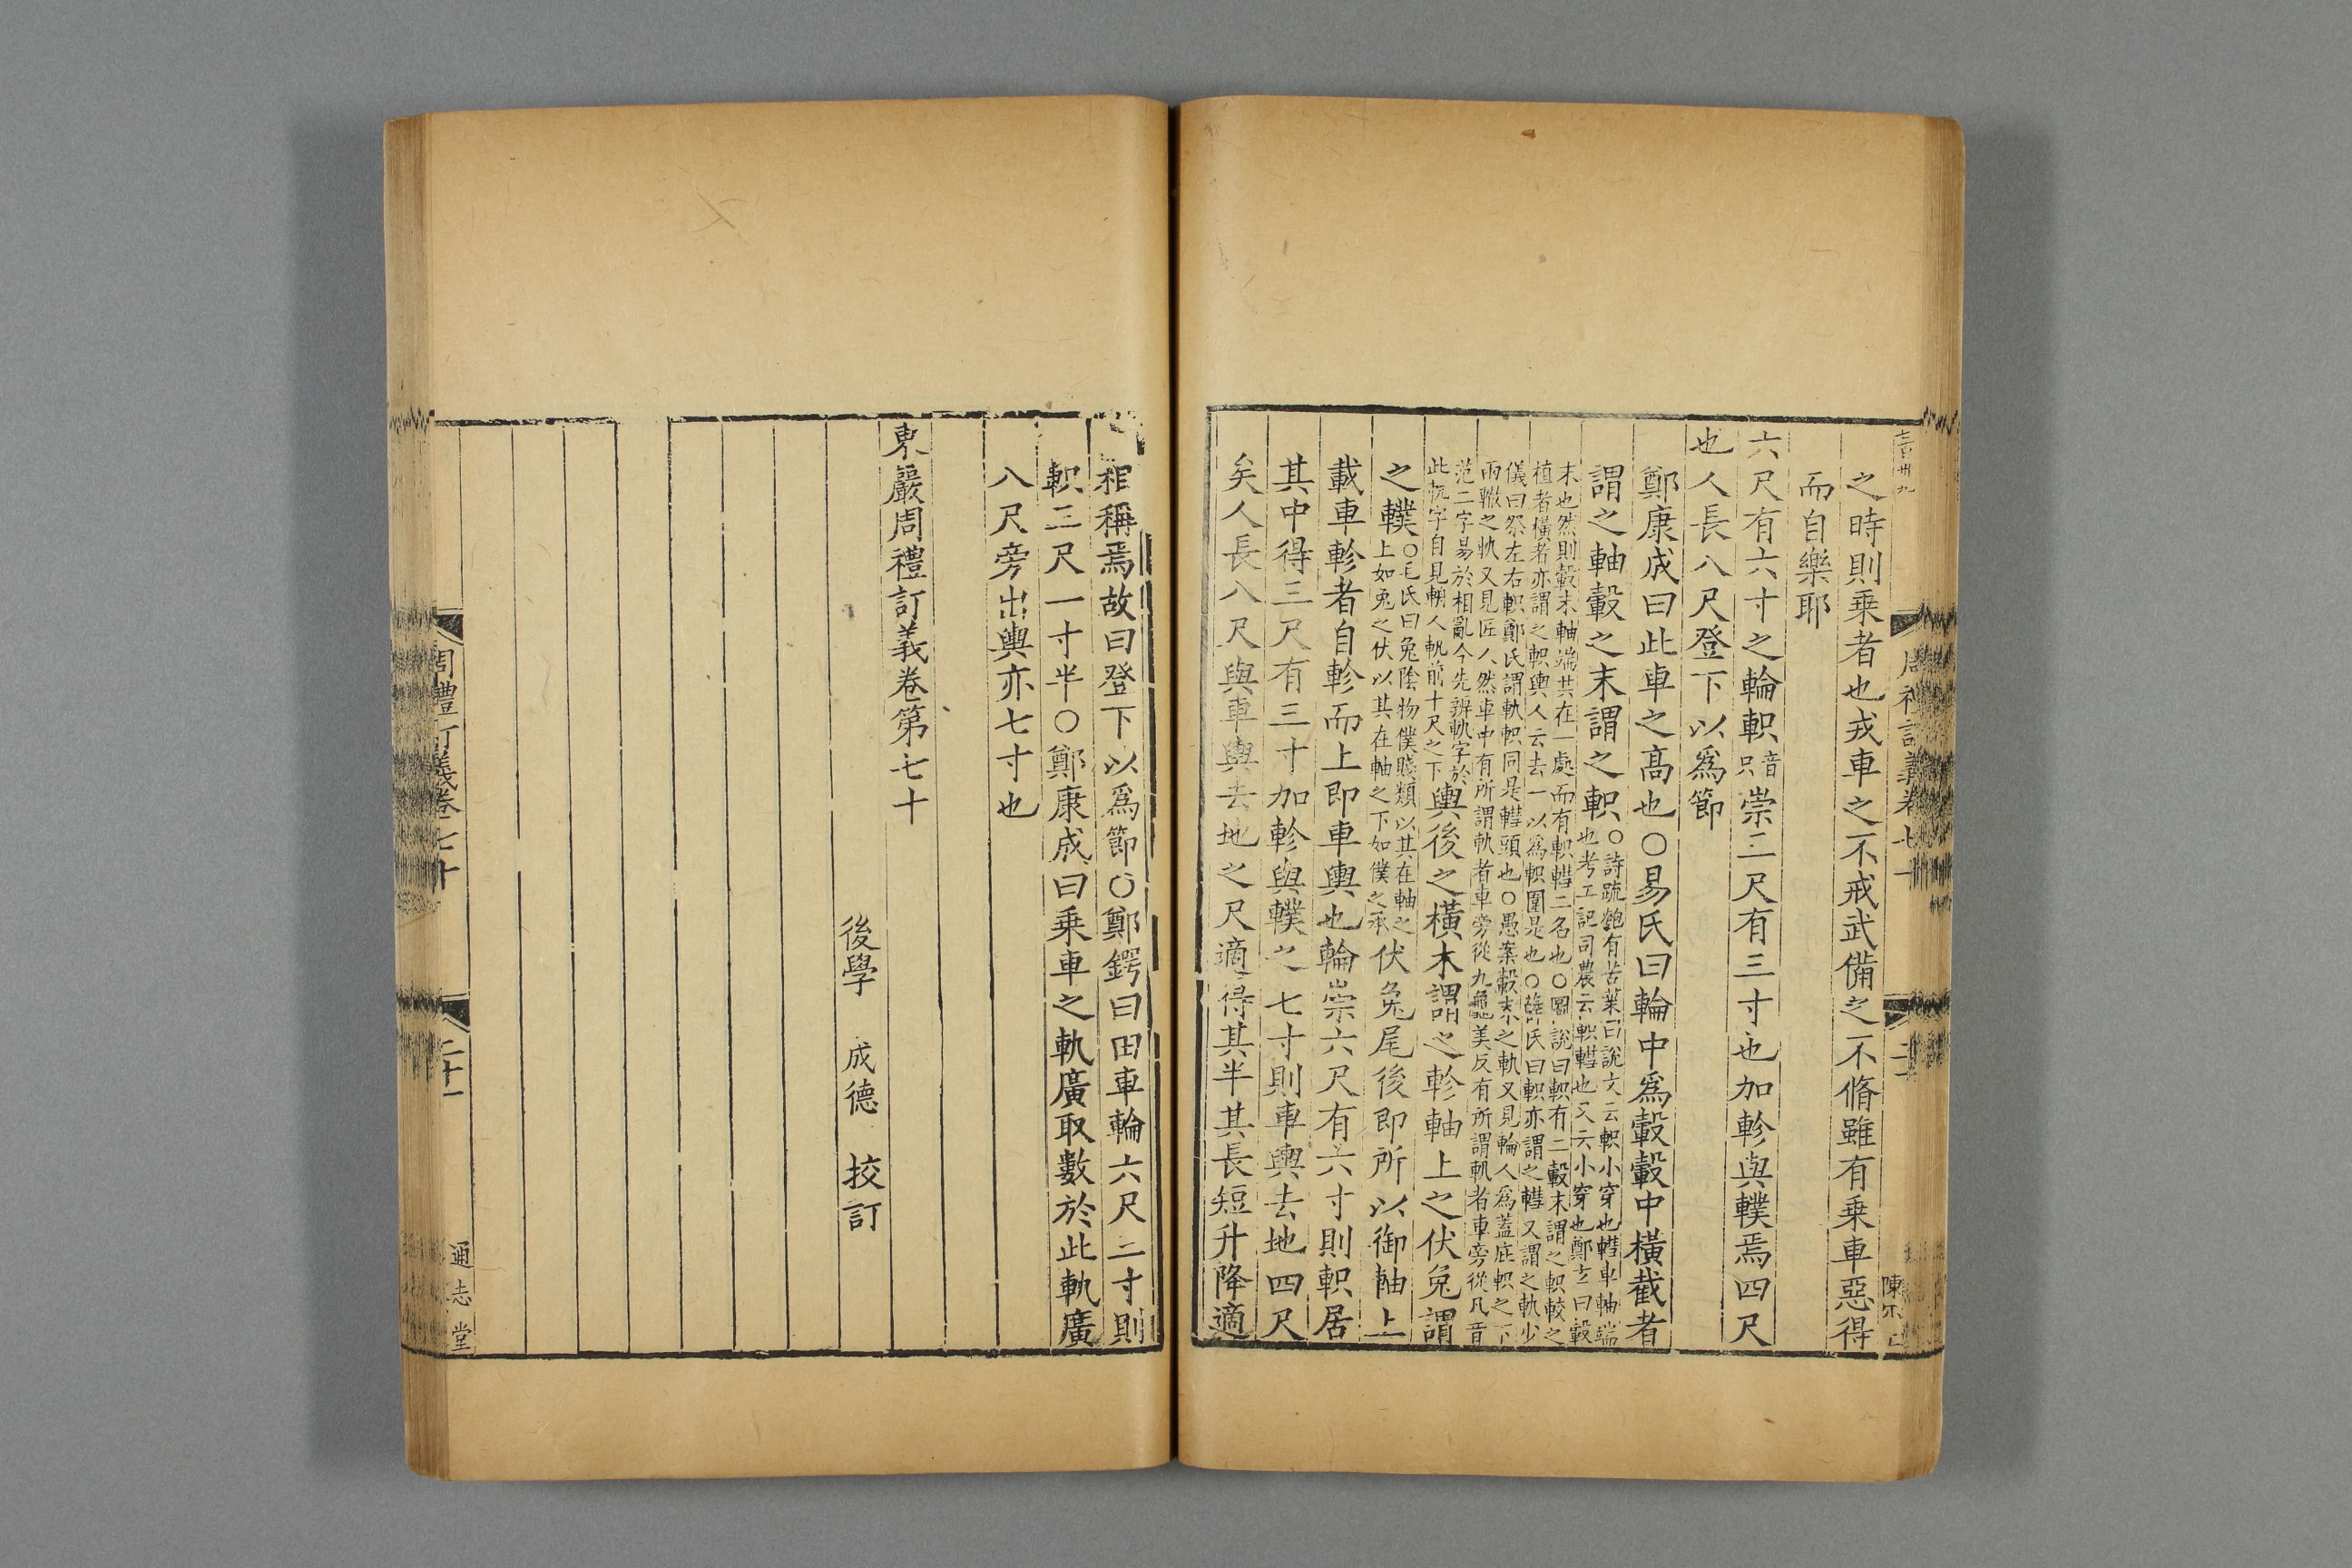 之時則乗者也戎車之不戒武備之不脩雖有乗車惡得
而自樂耶
六尺有六寸之輪軹音只崇三尺有三寸也加軫與轐焉四尺
也人長八尺登下以爲節
鄭康成曰此車之高也○易氏曰輪中爲轂轂中橫截者
謂之軸轂之末謂之軹○詩疏匏有苦葉曰說文云軹小穿也轊車軸端
也考工記司農云軹轊也又云小穿也鄭玄曰轂
末也然則轂末軸端共在一處而有軹轊二名也○圖說曰軹有二轂末謂之軹較之
植者橫者亦謂之軹輿人云去一以爲軹圍是也○薛氏曰軹亦謂之轊又謂之軌少
儀曰祭左右軹鄭氏謂軌軹同是轊頭也○愚案轂末之軌又見輪人爲蓋庛軹之下
兩轍之軌又見匠人然車中有所謂軌者車旁從九龜美反有所謂軓者車旁從凡音
范二字易於相亂今先辨軌字於
此軓字自見輈人軓前十尺之下輿後之橫木謂之軫軸上之伏兔謂
之轐○毛氏曰兔陰物僕賤類以其在軸之
上如兔之伏以其在軸之下如僕之承伏兔尾後即所以御軸上
載車軫者自軫而上即車輿也輪崇六尺有六寸則軹居
其中得三尺有三寸加軫與轐之七寸則車輿去地四尺
矣人長八尺與車輿去地之尺適得其半其長短升降適
周禮訂義卷七十
相稱焉故曰登下以爲節○鄭鍔曰田車輪六尺二寸則
軹三尺一寸半○鄭康成曰乗車之軌廣取數於此軌廣
八尺旁出輿亦七寸也
東巖周禮訂義卷第七十
後學 成德 挍訂
周禮訂義卷七十
二十一
通志堂